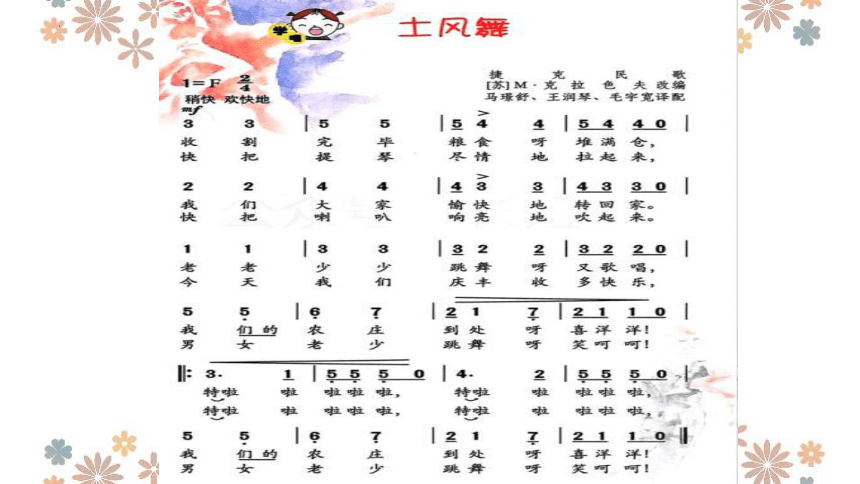 学唱
土风舞
1=F 2/4
捷克民歌
[苏]M·克拉色夫改编
稍快 欢快地
马璟舒、王润琴、毛宇宽译配
mf
3 3 | 5 5 | 5 4 4 | 5 4 4 0 |
收 割 完 毕 粮 食 呀 堆 满 仓,
快 把 提 琴 尽 情 地 拉 起 来,
2 2 | 4 4 | 4 3 3 | 4 3 3 0 |
我 们 大 家 愉 快 地 转 回 家。
快 把 喇 叭 响 亮 地 吹 起 来。
1 1 | 3 3 | 3 2 2 | 3 2 2 0 |
老 老 少 少 跳 舞 呀 又 歌 唱,
今 天 我 们 庆 丰 收 多 快 乐,
5 5 | 6 7 | 2 1 7 | 2 1 1 0 |
我 们 的 农 庄 到 处 呀 喜 洋 洋!
男 女 老 少 跳 舞 呀 笑 呵 呵!
‖: 3. 1 | 5 5 5 0 | 4. 2 | 5 5 5 0 |
特啦 啦 啦 啦 啦, 特啦 啦 啦 啦 啦,
特啦 啦 啦 啦 啦, 特啦 啦 啦 啦 啦,
5 5 | 6 7 | 2 1 7 | 2 1 1 0 ‖
我 们 的 农 庄 到 处 呀 喜 洋 洋!
男 女 老 少 跳 舞 呀 笑 呵 呵!